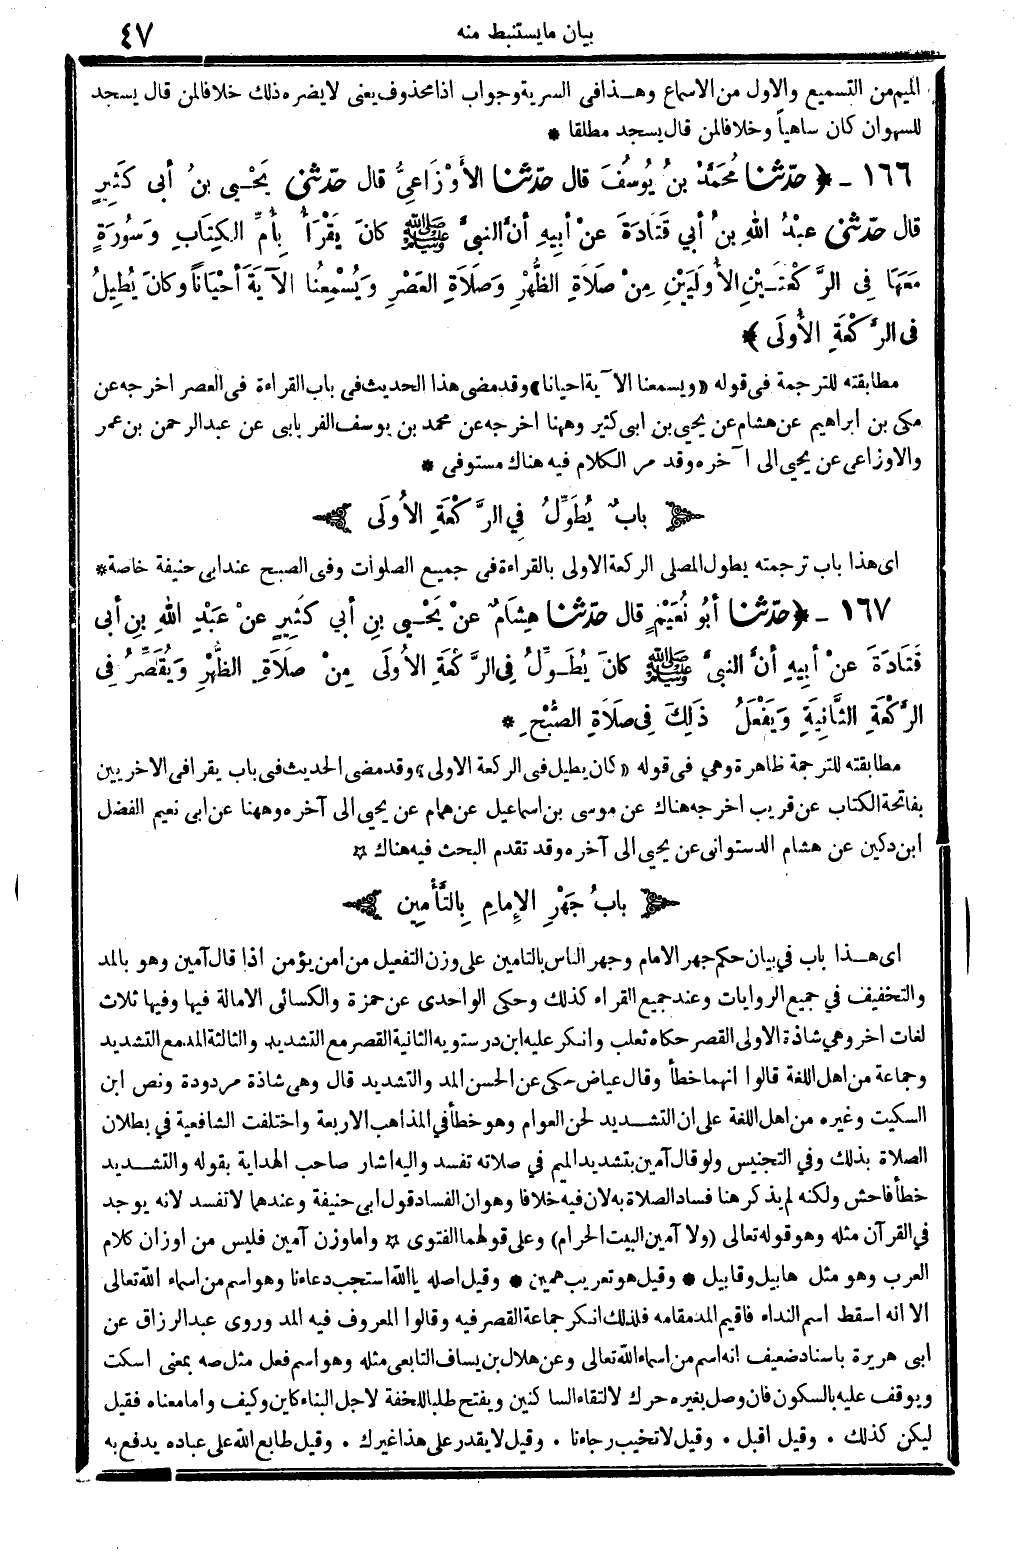 بيان مايستنبط منه ٤٧
الميم من التسميع والاول من الاسماع وهذا فى السرية وجواب اذا محذوف يعنى لايضره ذلك خلافا لمن قال يسجد
للسهوان كان ساهياً وخلافا لمن قال يسجد مطلقا *
١٦٦ ـ ﴿ حدّثنا مُحَمَّدُ بنُ يُوسُفَ قال حدّثنا الأَوْزَاعِيُّ قال حدّثنى يَحْيى بنُ أبى كَثِيرٍ
قال حدّثنى عبْدُ اللهِ بنُ أبي قَتَادَةَ عنْ أبيهِ أنَّ النبىَّ ﷺ كانَ يَقْرَأُ بِأُمِّ الكِتابِ وَسُورَةٍ
مَعَهَا فِى الرَّكْعَتَيْنِ الأُولَيَيْنِ مِنْ صَلاَةِ الظُّهْرِ وَصَلاَةِ العَصْرِ وَيُسْمِعُنا الآيَةَ أَحْيَاناً وكانَ يُطِيلُ
فى الرَّكْعَةِ الأُولَى ﴾
مطابقته للترجمة فى قوله «ويسمعنا الآية احيانا» وقد مضى هذا الحديث فى باب القراءة فى العصر اخرجه عن
مكى بن ابراهيم عن هشام عن يحيى بن ابى كثير وههنا اخرجه عن محمد بن يوسف الفريابى عن عبدالرحمن بن عمر
والاوزاعى عن يحيى الى آخره وقد مر الكلام فيه هناك مستوفى *
﴿ بابٌ يُطَوِّلُ فِي الرَّكْعَةِ الأُولَى ﴾
اى هذا باب ترجمته يطول المصلى الركعة الاولى بالقراءة فى جميع الصلوات وفى الصبح عند ابى حنيفة خاصة *
١٦٧ ـ ﴿ حدّثنا أبُو نُعَيْمٍ قال حدّثنا هِشَامٌ عنْ يَحْيى بنِ أبي كَثِيرٍ عنْ عَبْدِ اللهِ بنِ أبى
قَتَادَةَ عنْ أبيهِ أنَّ النبىَّ ﷺ كانَ يُطَوِّلُ فِى الرَّكْعَةِ الأُولَى مِنْ صَلاَةِ الظُّهْرِ وَيُقَصِّرُ فِى
الرَّكْعَةِ الثَّانِيَةِ وَيَفْعَلُ ذَلِكَ فِى صَلاَةِ الصُّبْحِ *
مطابقته للترجمة ظاهرة وهي فى قوله «كان يطيل فى الركعة الاولى» وقد مضى الحديث فى باب يقرا فى الاخريين
بفاتحة الكتاب عن قريب اخرجه هناك عن موسى بن اسماعيل عن همام عن يحيى الى آخره وههنا عن ابى نعيم الفضل
ابن دكين عن هشام الدستوانى عن يحيى الى آخره وقد تقدم البحث فيه هناك ☆
﴿ بابُ جَهْرِ الإِمامِ بِالتَّأْمِينِ ﴾
اى هذا باب في بيان حكم جهر الامام وجهر الناس بالتامين على وزن التفعيل من امن يؤمن اذا قال آمين وهو بالمد
والتخفيف في جميع الروايات وعند جميع القراء كذلك وحكى الواحدى عن حمزة والكسائى الامالة فيها وفيها ثلاث
لغات اخر وهي شاذة الاولى القصر حكاه ثعلب وانكر عليه ابن درستويه الثانية القصر مع التشديد والثالثة المد مع التشديد
وجماعة من اهل اللغة قالوا انهما خطأ وقال عياض حكى عن الحسن المد والتشديد قال وهى شاذة مردودة ونص ابن
السكيت وغيره من اهل اللغة على ان التشديد لحن العوام وهو خطأ في المذاهب الاربعة واختلفت الشافعية في بطلان
الصلاة بذلك وفي التجنيس ولو قال آمين بتشديد الميم في صلاته تفسد واليه اشار صاحب الهداية بقوله والتشديد
خطأ فاحش ولكنه لم يذكر هنا فساد الصلاة به لان فيه خلافا وهو ان الفساد قول ابى حنيفة وعندهما لاتفسد لانه يوجد
في القرآن مثله وهو قوله تعالى (ولا آمين البيت الحرام) وعلى قولهما الفتوى ☆ واما وزن آمين فليس من اوزان كلام
العرب وهو مثل هابيل وقابيل * وقيل هو تعريب همين * وقيل اصله ياالله استجب دعاءنا وهو اسم من اسماء الله تعالى
الا انه اسقط اسم النداء فاقيم المد مقامه فلذلك انكر جماعة القصر فيه وقالوا المعروف فيه المد وروى عبدالرزاق عن
ابى هريرة باسناد ضعيف انه اسم من اسماء الله تعالى وعن هلال بن يساف التابعى مثله وهو اسم فعل مثل صه بمعنى اسكت
ويوقف عليه بالسكون فان وصل بغيره حرك لالتقاء الساكنين ويفتح طلبا للخفة لاجل البناء كاين وكيف واما معناه فقيل
ليكن كذلك . وقيل اقبل . وقيل لاتخيب رجاءنا . وقيل لايقدر على هذا غيرك . وقيل طابع الله على عباده يدفع به